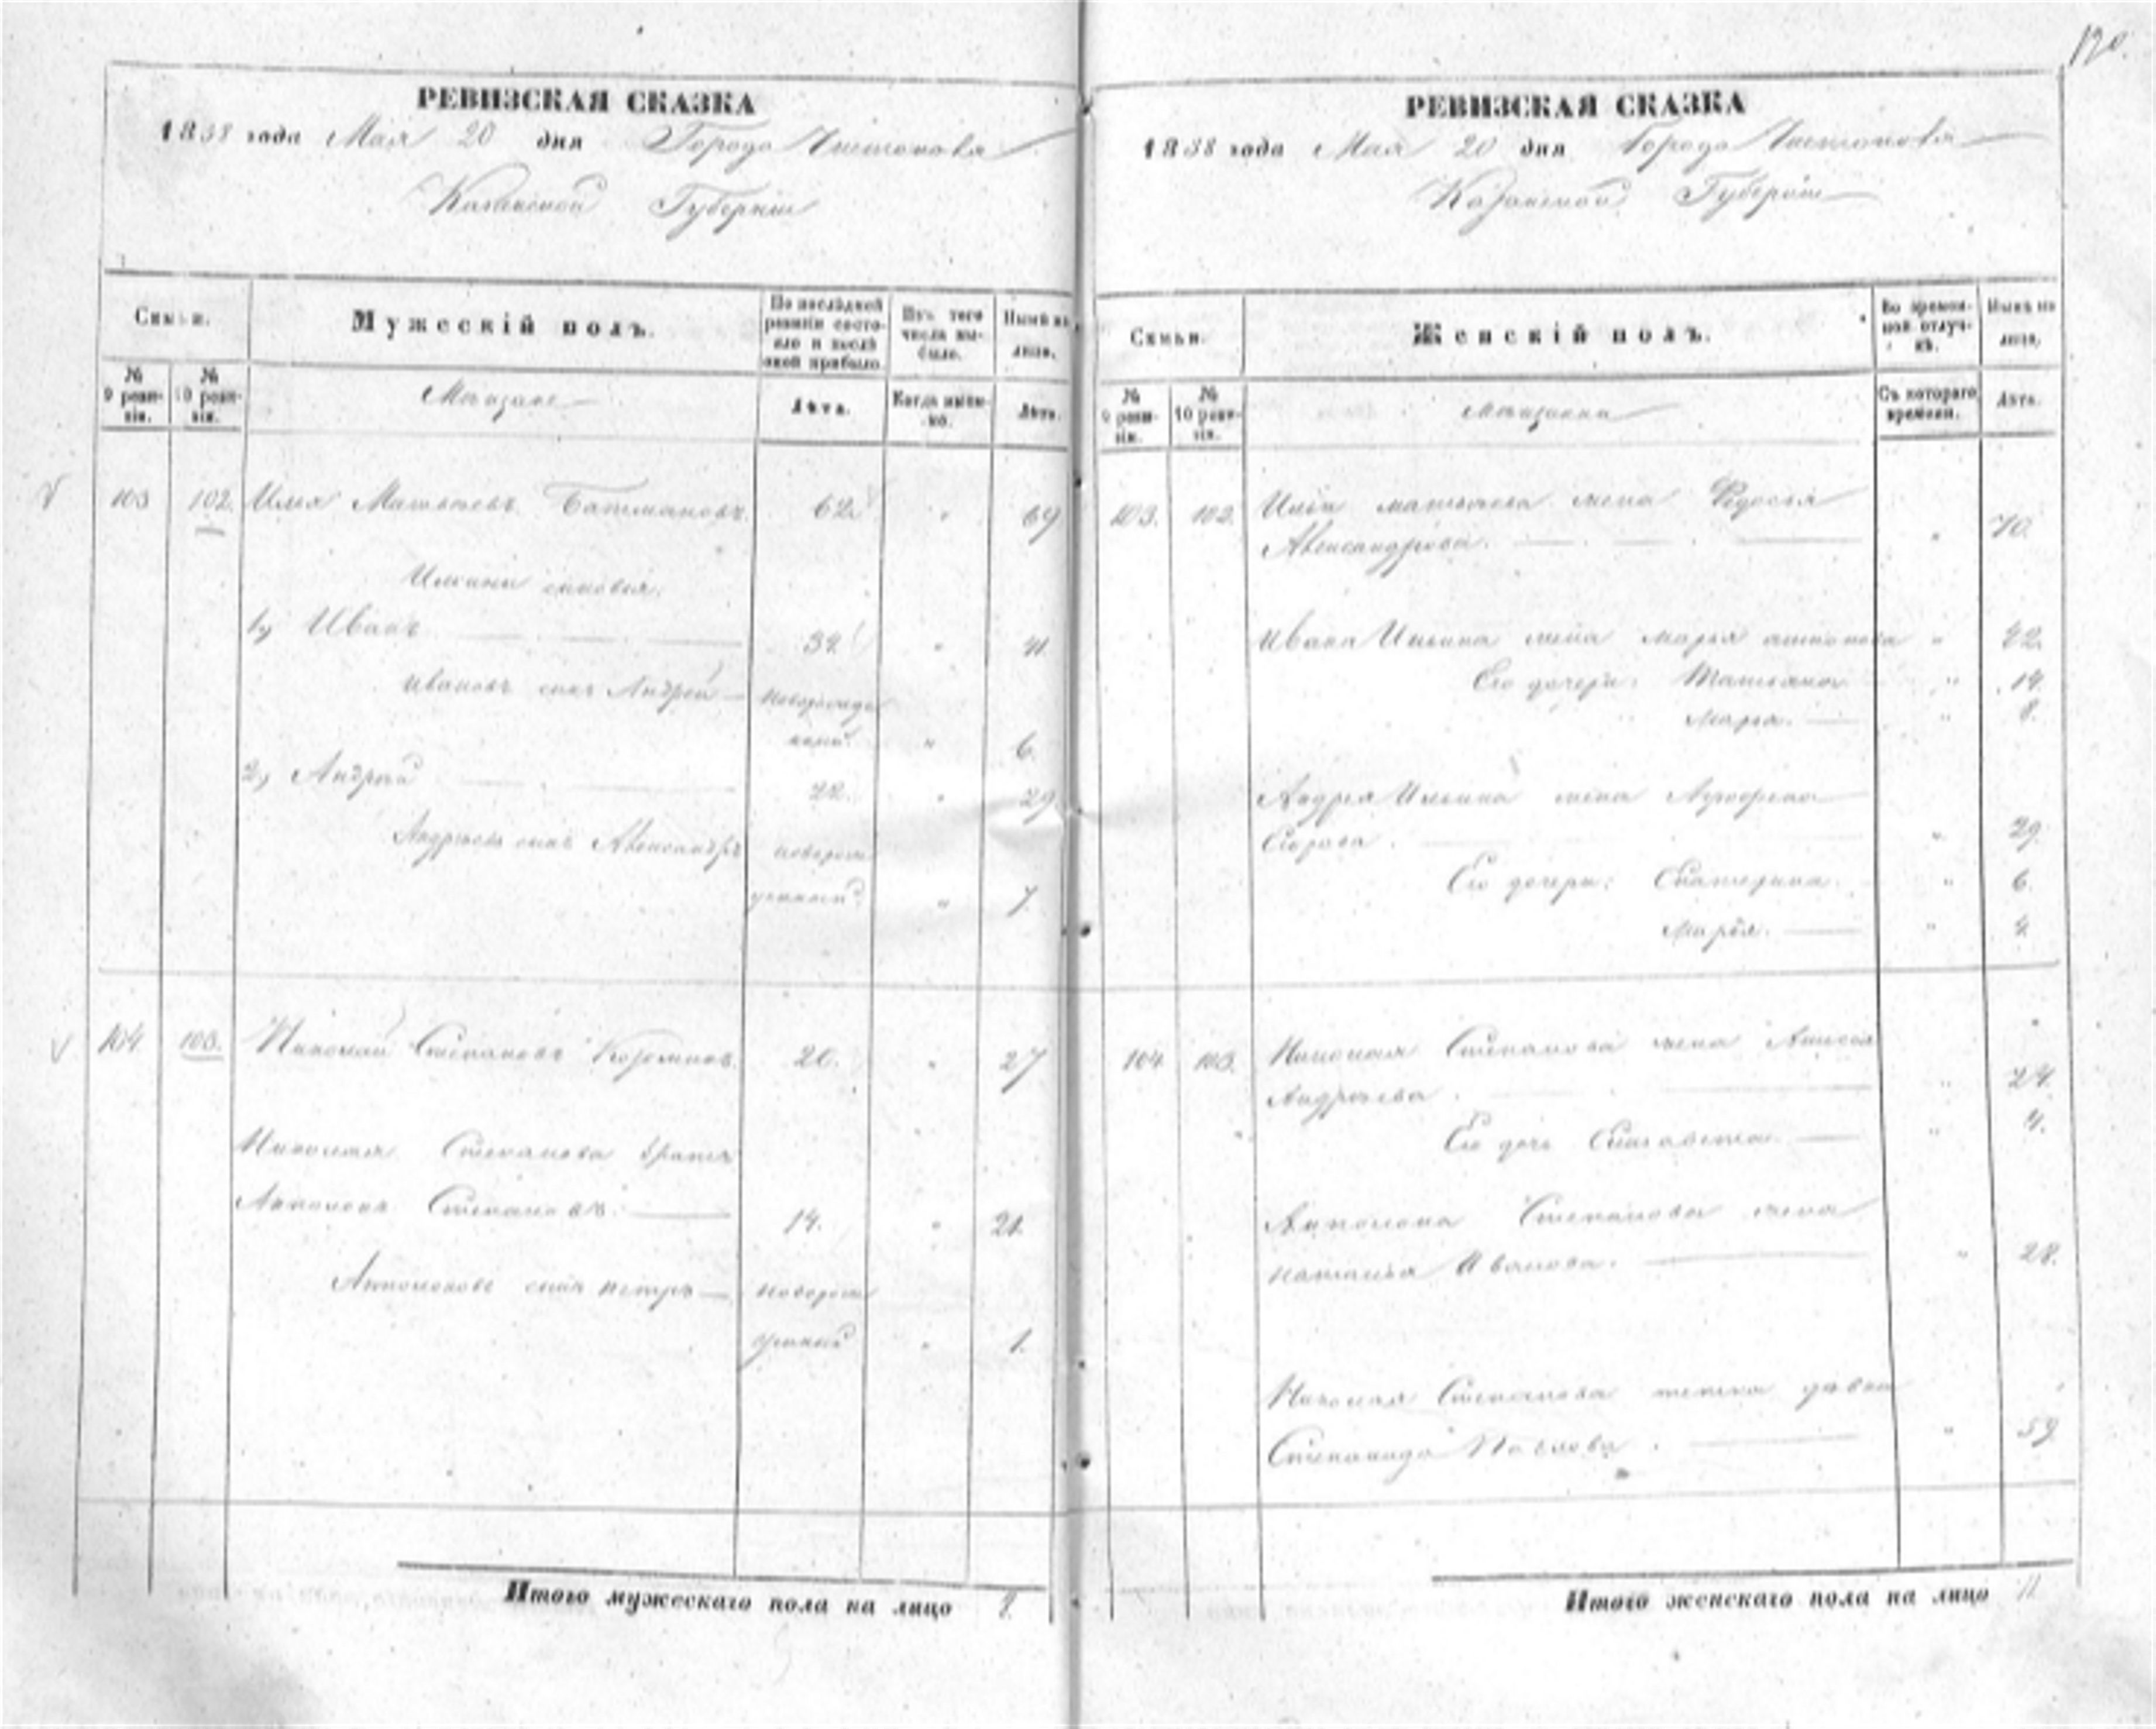 190.
РЕВИЗСКАЯ СКАЗКА
1858 года Мая 20 дня Города Чистополя
Казанской Губернии
Семьи.
Мужескій полъ.
По послѣдней ревизіи состояло и послѣ оной прибыло.
Изъ того числа выбыло.
Нынѣ на лицо.
№ 9 ревизіи.
№ 10 ревизіи.
Мѣщане
Лѣта.
Когда именно.
Лѣта.
103 102. Илья Матвѣевъ Батмановъ. 62. " 69
Ильины сыновья.
1, Иванъ 34. " 41
Ивановъ сынъ Андрей новорожденный. " 6.
2, Андрей 22. " 29.
Андреевъ сынъ Александръ новорожденный " 7.
104. 103. Николай Степановъ 20. " 27
Николая Степанова братъ
Антонъ Степановъ. 14. " 21.
сынъ Петръ новорожденный " 1.
Итого мужескаго пола на лицо 8.
РЕВИЗСКАЯ СКАЗКА
1858 года Мая 20 дня Города Чистополя
Казанской Губерніи
Семьи.
Женскій полъ.
Во временной отлучкѣ.
Нынѣ на лицо.
№ 9 ревизіи.
№ 10 ревизіи.
Мѣщанки
Съ котораго времени.
Лѣта.
103. 102. Ильи Матвѣева жена Федосья
Александрова. " 70.
Ивана Ильина жена Марья Антонова " 42.
Его дочери: Татьяна " 14.
Марья. " 8.
Андрея Ильина жена
Егорова. " 29.
Его дочери: Екатерина. " 6.
Марья. " 4.
104 103. Николая Степанова жена Анисья
Андреева. " 24.
Его дочь Елисавета. " 4.
Степанова жена
Наталья Иванова. " 28.
Николая Степанова тетка девка
Степанида Павлова. " 59
Итого женскаго пола на лицо 11